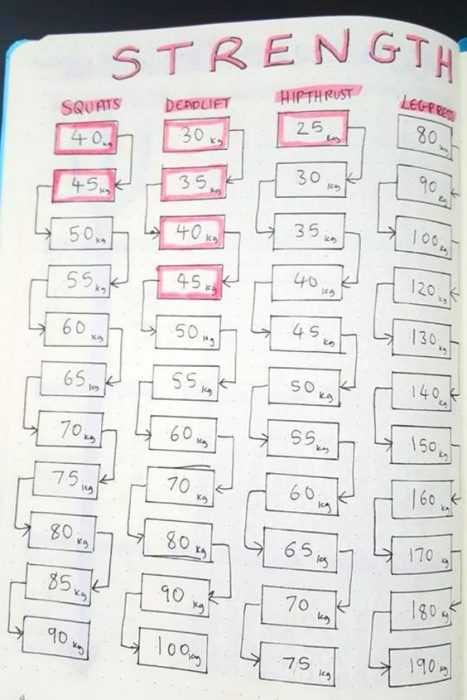 STRENGTH
SQUATS DEADLIFT HIPTHRUST LEGPRESS
40kg 30kg 25kg 80kg
45kg 35kg 30kg 90kg
50kg 40kg 35kg 100kg
55kg 45kg 40kg 120kg
60kg 50kg 45kg 130kg
65kg 55kg 50kg 140kg
70kg 60kg 55kg 150kg
75kg 70kg 60kg 160kg
80kg 80kg 65kg 170kg
85kg 90kg 70kg 180kg
90kg 100kg 75kg 190kg